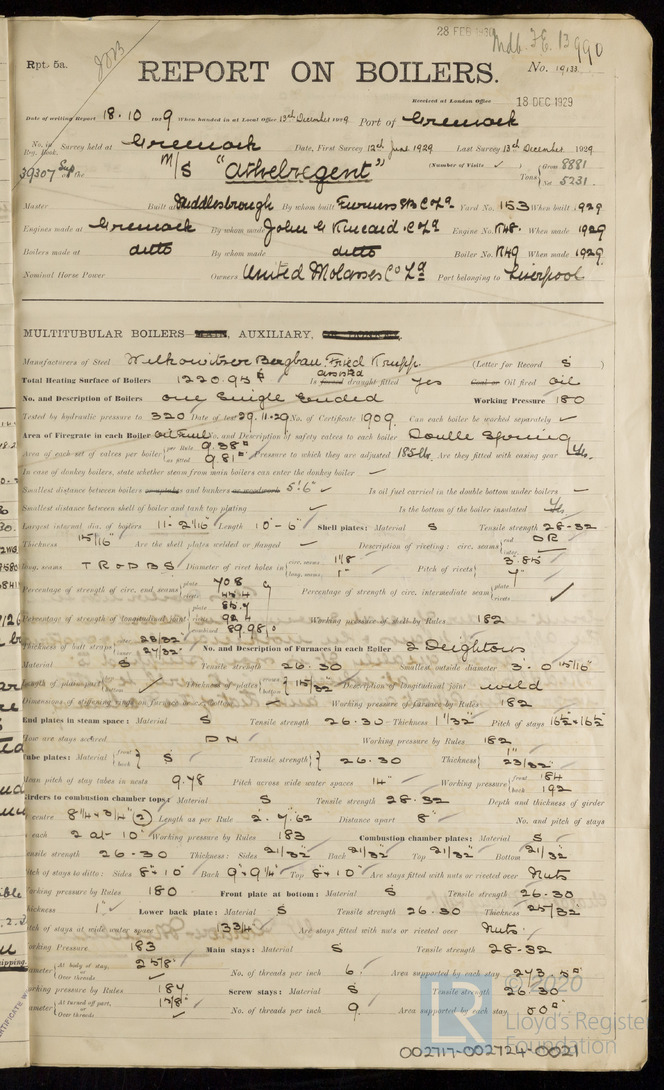 28 FEB 1930
Mdb. F.E. 13990
Rpt. 5a.
REPORT ON BOILERS.
No. 19133
Received at London Office 18 DEC 1929
Date of writing Report 18.10.1929 When handed in at Local Office 13th December 1929 Port of Greenock
No. in Reg. Book. Survey held at Greenock Date, First Survey 12th June 1929 Last Survey 13th December 1929
39307 Sup on the M/S "Athelregent" (Number of Visits ✓) Tons Gross 8881 Net 5231
Master Built at Middlesbrough By whom built Furness SB Co Ld Yard No. 153 When built 1929
Engines made at Greenock By whom made John G Kincaid & Co Ld Engine No. When made 1929
Boilers made at ditto By whom made ditto Boiler No. When made 1929
Nominal Horse Power Owners United Molasses Co Ld Port belonging to Liverpool
MULTITUBULAR BOILERS—MAIN, AUXILIARY,
Manufacturers of Steel Witkowitzer Bergbau. Fried Krupp. (Letter for Record S
Total Heating Surface of Boilers 1220.95 Is forced assisted draught fitted yes Coal or Oil fired oil
No. and Description of Boilers one Single Ended Working Pressure 180
Tested by hydraulic pressure to 320 Date of test 29.11.29 No. of Certificate 1909. Can each boiler be worked separately ✓
Area of Firegrate in each Boiler oil fuel No. and Description of safety valves to each boiler Double Spring
Area of each set of valves per boiler per Rule 9.38 as fitted 9.81 Pressure to which they are adjusted 185 lbs Are they fitted with easing gear Yes.
In case of donkey boilers, state whether steam from main boilers can enter the donkey boiler ✓
Smallest distance between boilers or uptakes and bunkers or woodwork 5'.6" ✓ Is oil fuel carried in the double bottom under boilers ✓
Smallest distance between shell of boiler and tank top plating ✓ Is the bottom of the boiler insulated Yes
Largest internal dia. of boilers 11-2 1/16" Length 10'-6" Shell plates: Material S Tensile strength 28-32
Thickness 15/16" Are the shell plates welded or flanged ✓ Description of riveting: circ. seams end DR inter. ✓
long. seams TR & DBS Diameter of rivet holes in circ. seams 1 1/8 long. seams 1" Pitch of rivets 3.85" 7"
Percentage of strength of circ. end seams plate 70.8 rivets 45.4 Percentage of strength of circ. intermediate seam plate rivets ✓
Percentage of strength of longitudinal joint plate 85.7 rivets 92.4 combined 89.98 Working pressure of shell by Rules 182
Thickness of butt straps outer 23/32 inner 27/32 No. and Description of Furnaces in each Boiler 2 Deightons
Material S Tensile strength 26.30 Smallest outside diameter 3.0 15/16"
Length of plain part ✓ Thickness of plates 15/32 Description of longitudinal joint weld
Dimensions of stiffening rings on furnace or c.c. bottom ✓ Working pressure of furnace by Rules 182
End plates in steam space: Material S Tensile strength 26.30 Thickness 1 1/32" Pitch of stays 16½ × 16½
How are stays secured DN Working pressure by Rules 182
Tube plates: Material front back S Tensile strength 26.30 Thickness 1" 23/32"
Mean pitch of stay tubes in nests 9.78 Pitch across wide water spaces 14" Working pressure front 184 back 192
Girders to combustion chamber tops: Material S Tensile strength 28-32 Depth and thickness of girder
at centre 8¼ × ¾ (2) Length as per Rule 2.7.62 Distance apart 8" No. and pitch of stays
in each 2 at 10" Working pressure by Rules 183 Combustion chamber plates: Material S
Tensile strength 26-30 Thickness: Sides 21/32" Back 21/32" Top 21/32" Bottom 21/32"
Pitch of stays to ditto: Sides 8 × 10" Back 9 × 9¼" Top 8 × 10" Are stays fitted with nuts or riveted over Nuts
Working pressure by Rules 180 Front plate at bottom: Material S Tensile strength 26-30
Thickness 1" ✓ Lower back plate: Material S Tensile strength 26.30 Thickness 25/32
Pitch of stays at wide water space 13¾ Are stays fitted with nuts or riveted over Nuts.
Working Pressure 183 Main stays: Material S Tensile strength 28-32
Diameter At body of stay, 2⅝" or Over threads No. of threads per inch 6. Area supported by each stay 273
Working pressure by Rules 184 Screw stays: Material S Tensile strength 26-30
Diameter At turned off part, 1⅞" or Over threads No. of threads per inch 9. Area supported by each stay 80
© 2020
LR
Lloyd's Register
Foundation
002717-002724-0021